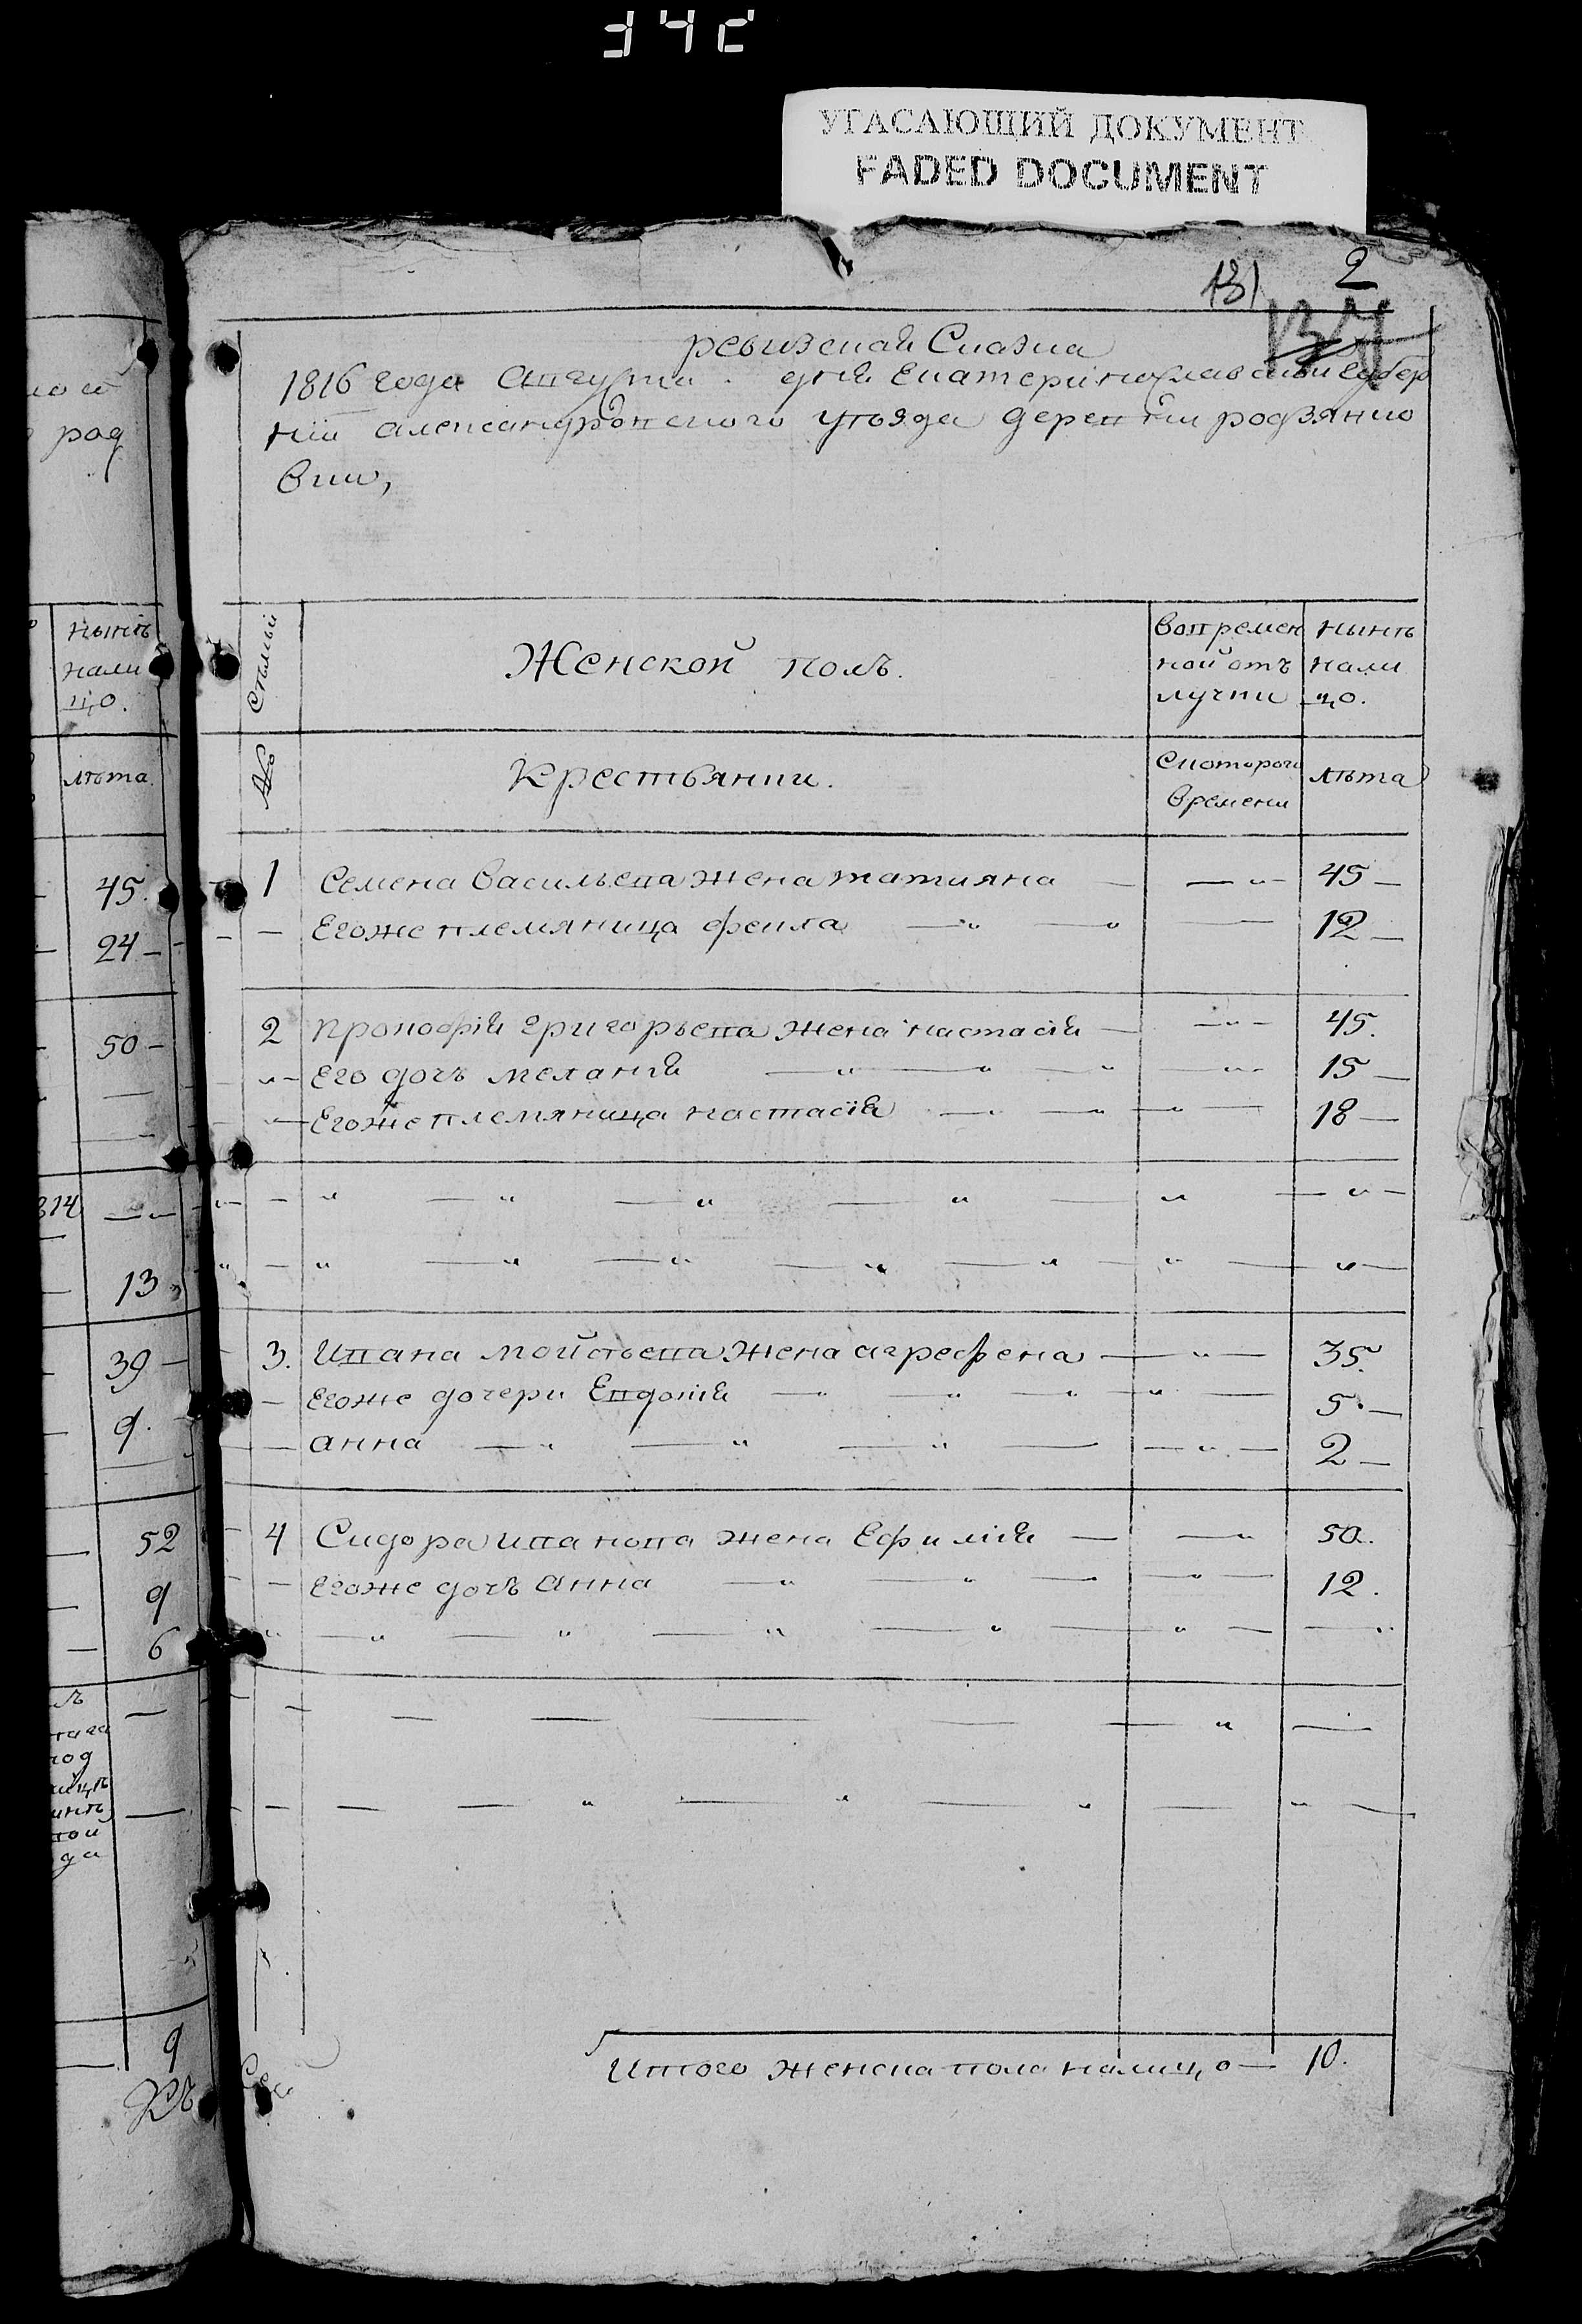 УГАСАЮЩИЙ ДОКУМЕНТ
FADED DOCUMENT
131
2
ревизская Сказка
1816 года Августа дня Екатеринославской губер
нïи александровского уѣзда деревни родзянко
вки,
Женской полъ.
вовремен
ной отъ
лучки
нынѣ
нали
цо.
№
Крестьянки.
Скоторого
времени
лѣта
1 Семена Васильева жена татияна — — „ — 45 —
— Егоже племяница фекла — „ — „ — 12 —
2 Прокофiя григорьева жена настасiя — — „ — 45.
„ — Его дочь меланiя — „ — „ — „ — „ — 15 —
„ — Егоже племяница настасiя — „ — „ — „ — 18 —
3. Ивана мойсѣева жена агрефена — „ — 35.
— Егоже дочери Евдокiя — „ — „ — „ — „ — 5. —
— анна — „ — „ — „ — — „ — 2 —
4 Сидора иванова жена Ефимiя — — „ 50.
— Егоже дочь анна — „ — „ — — „ — 12.
Итого женска пола налицо — 10.
нынѣ
нали
цо.
лѣта.
45.
24 —
50 —
814
13
39 —
9.
52
9
6
9